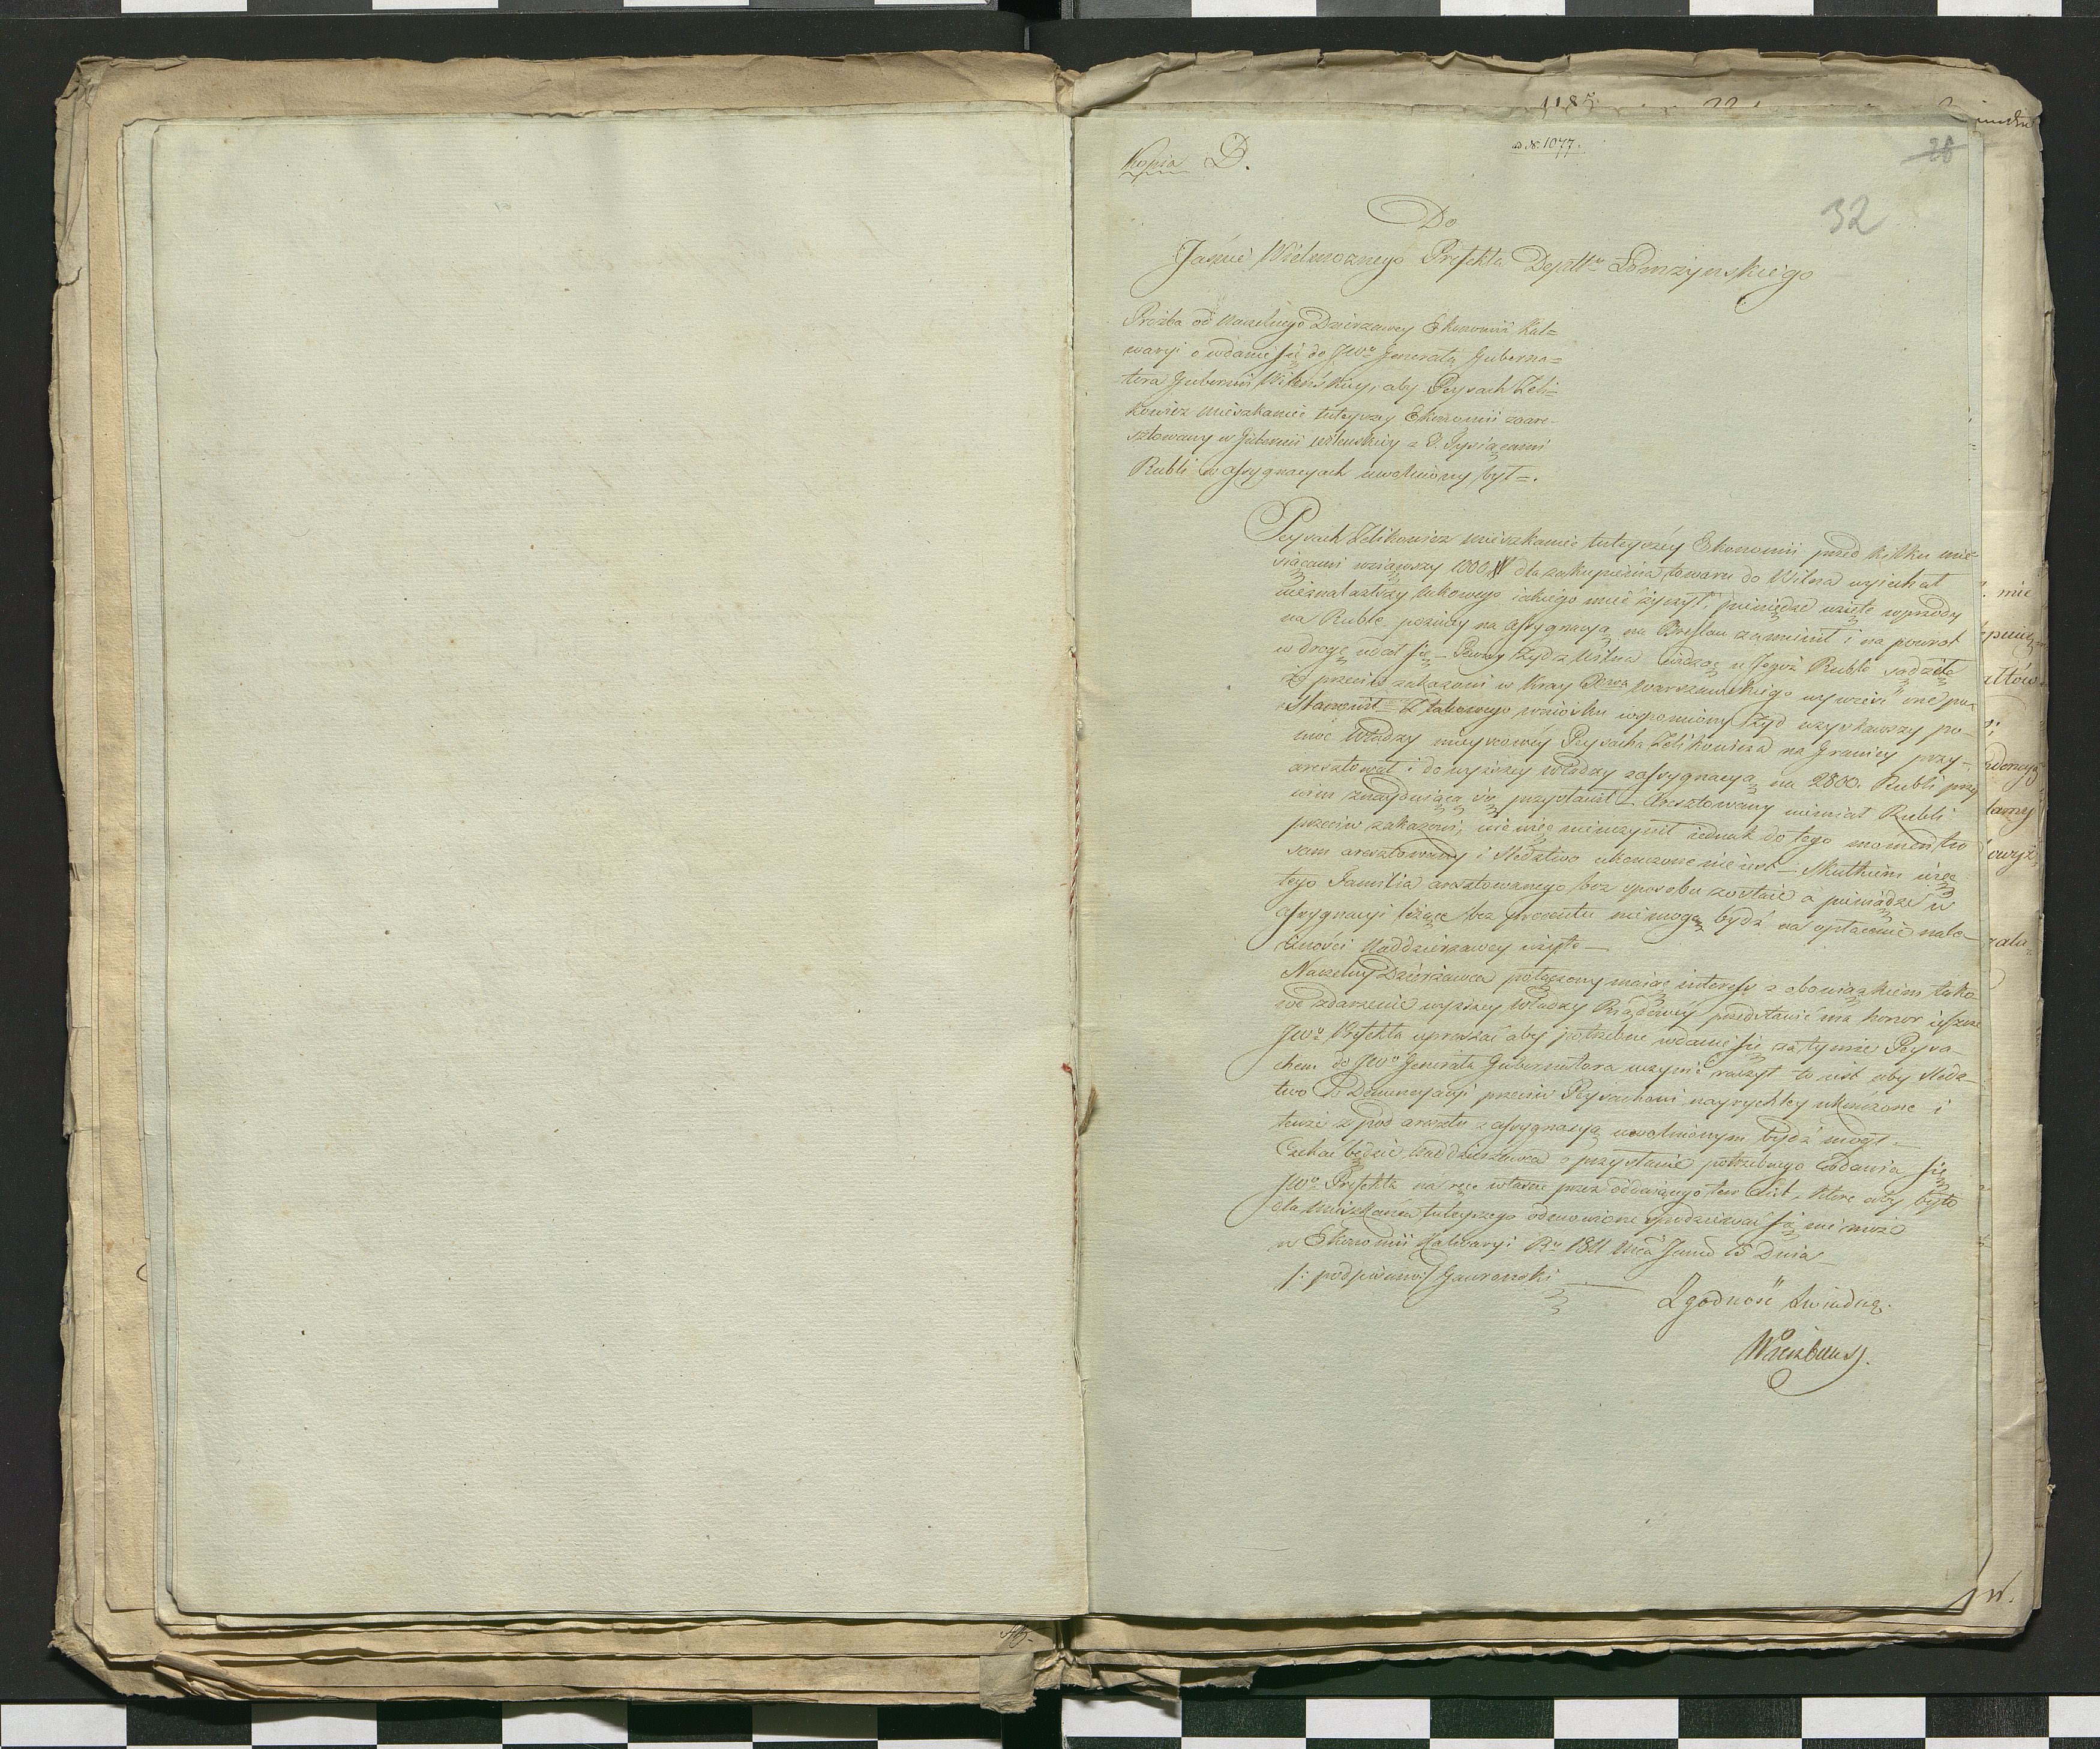 1185.
ad N. 1077.
Kopia D.
28
32
Do
Jaśnie Wielmożnego Prefekta Deptt Łomżyńskiego
Prożba od Naczelnego Dzierzawcy Ekonomii Kal=
waryi o wdanie się do JWo Generała Guberna=
tora Gubernii Wileńskiey, aby Peysach Zeli=
kowicz mieszkaniec tuteyszey Ekonomii zaare-
sztowany w Gubernii Wileńskiey z Tysiącami
Rubli w assygnacyach uwolniony był =.
Peysach Zelikowicz mieszkaniec tuteyszey Ekonomii przed kilku mie
siącami wziąwszy 1000 # dla zakupienia towaru do Wilna wyiechał
nieznalazłszy takowego iakiego mieć życzył, pieniądze wzięte wprzódy
na Ruble poźniey na assygnacyą na Breslau zamienił i na powrot
w drogę udał się – Pewny Żyd z Wilna widząc u Tegoż Ruble sądził
iż przeciw zakazowi w kray Xięstwa Warszawskiego wywieść one po=
stanowił = Z takowego wniosku wspomniony Żyd uzyskawszy po-
moc Władzy mieyscowey Peysacha Zelikowicza na Granicy przy-
aresztował i do wyższey Władzy z assygnacyą na 2800. Rubli przy
nim znayduiącą się przystawił – Aresztowany niemiał Rubli
przeciw zakazowi, nic więc nieuczynił iednak do tego momentu
sam aresztowany i śledztwo ukończone nie iest – Skutkiem więc
tego Familia aresztowanego bez sposobu zostaie a pieniądze w
assygnacyi leżące bez procentu nie mogą bydź na opłacenie nale-
żności Naddzierżawcy użyte –
Naczelny Dzierżawca połączony maiąc interess z obowiązkiem tako
we zdarzenie wyższey Władzy Rządowey przedstawić ma honor i
JWo Prefekta upraszać aby potrzebne wdanie się za tymże Peysa-
chem do JWo Generała Gubernatora uczynić raczył to iest aby śledz-
two Denuncyacyi przeciw Peysachowi nayrychley ukończone i
tenże z pod aresztu z assygnacyą uwolnionym bydź mógł. –
Czekać będzie Naddzierżawca o przysłanie potrzebnego wdania się
JWo Prefekta na ręce własne przez oddaiącego ten List, które aby było
dla mieszkańca tuteyszego odmowione spodziewać się nie może
w Ekonomii Kalwaryi Ru 1811 Mca Junii 15 Dnia –
/: podpisano:/ Gawroński
Zgodność świadczę.